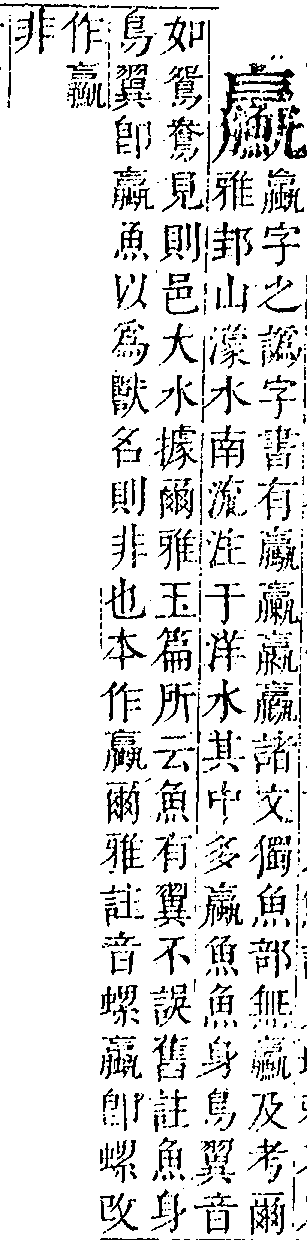 蠃字之譌字書有驘臝蠃鸁諸文獨魚部無蠃及考爾
雅邽山濛水南流注于洋水其中多蠃魚魚身鳥翼音
如鴛鴦見則邑大水據爾雅玉篇所云魚有翼不誤舊註魚身
鳥翼卽蠃魚以爲獸名則非也本作蠃爾雅註音螺蠃卽螺改
作蠃
非